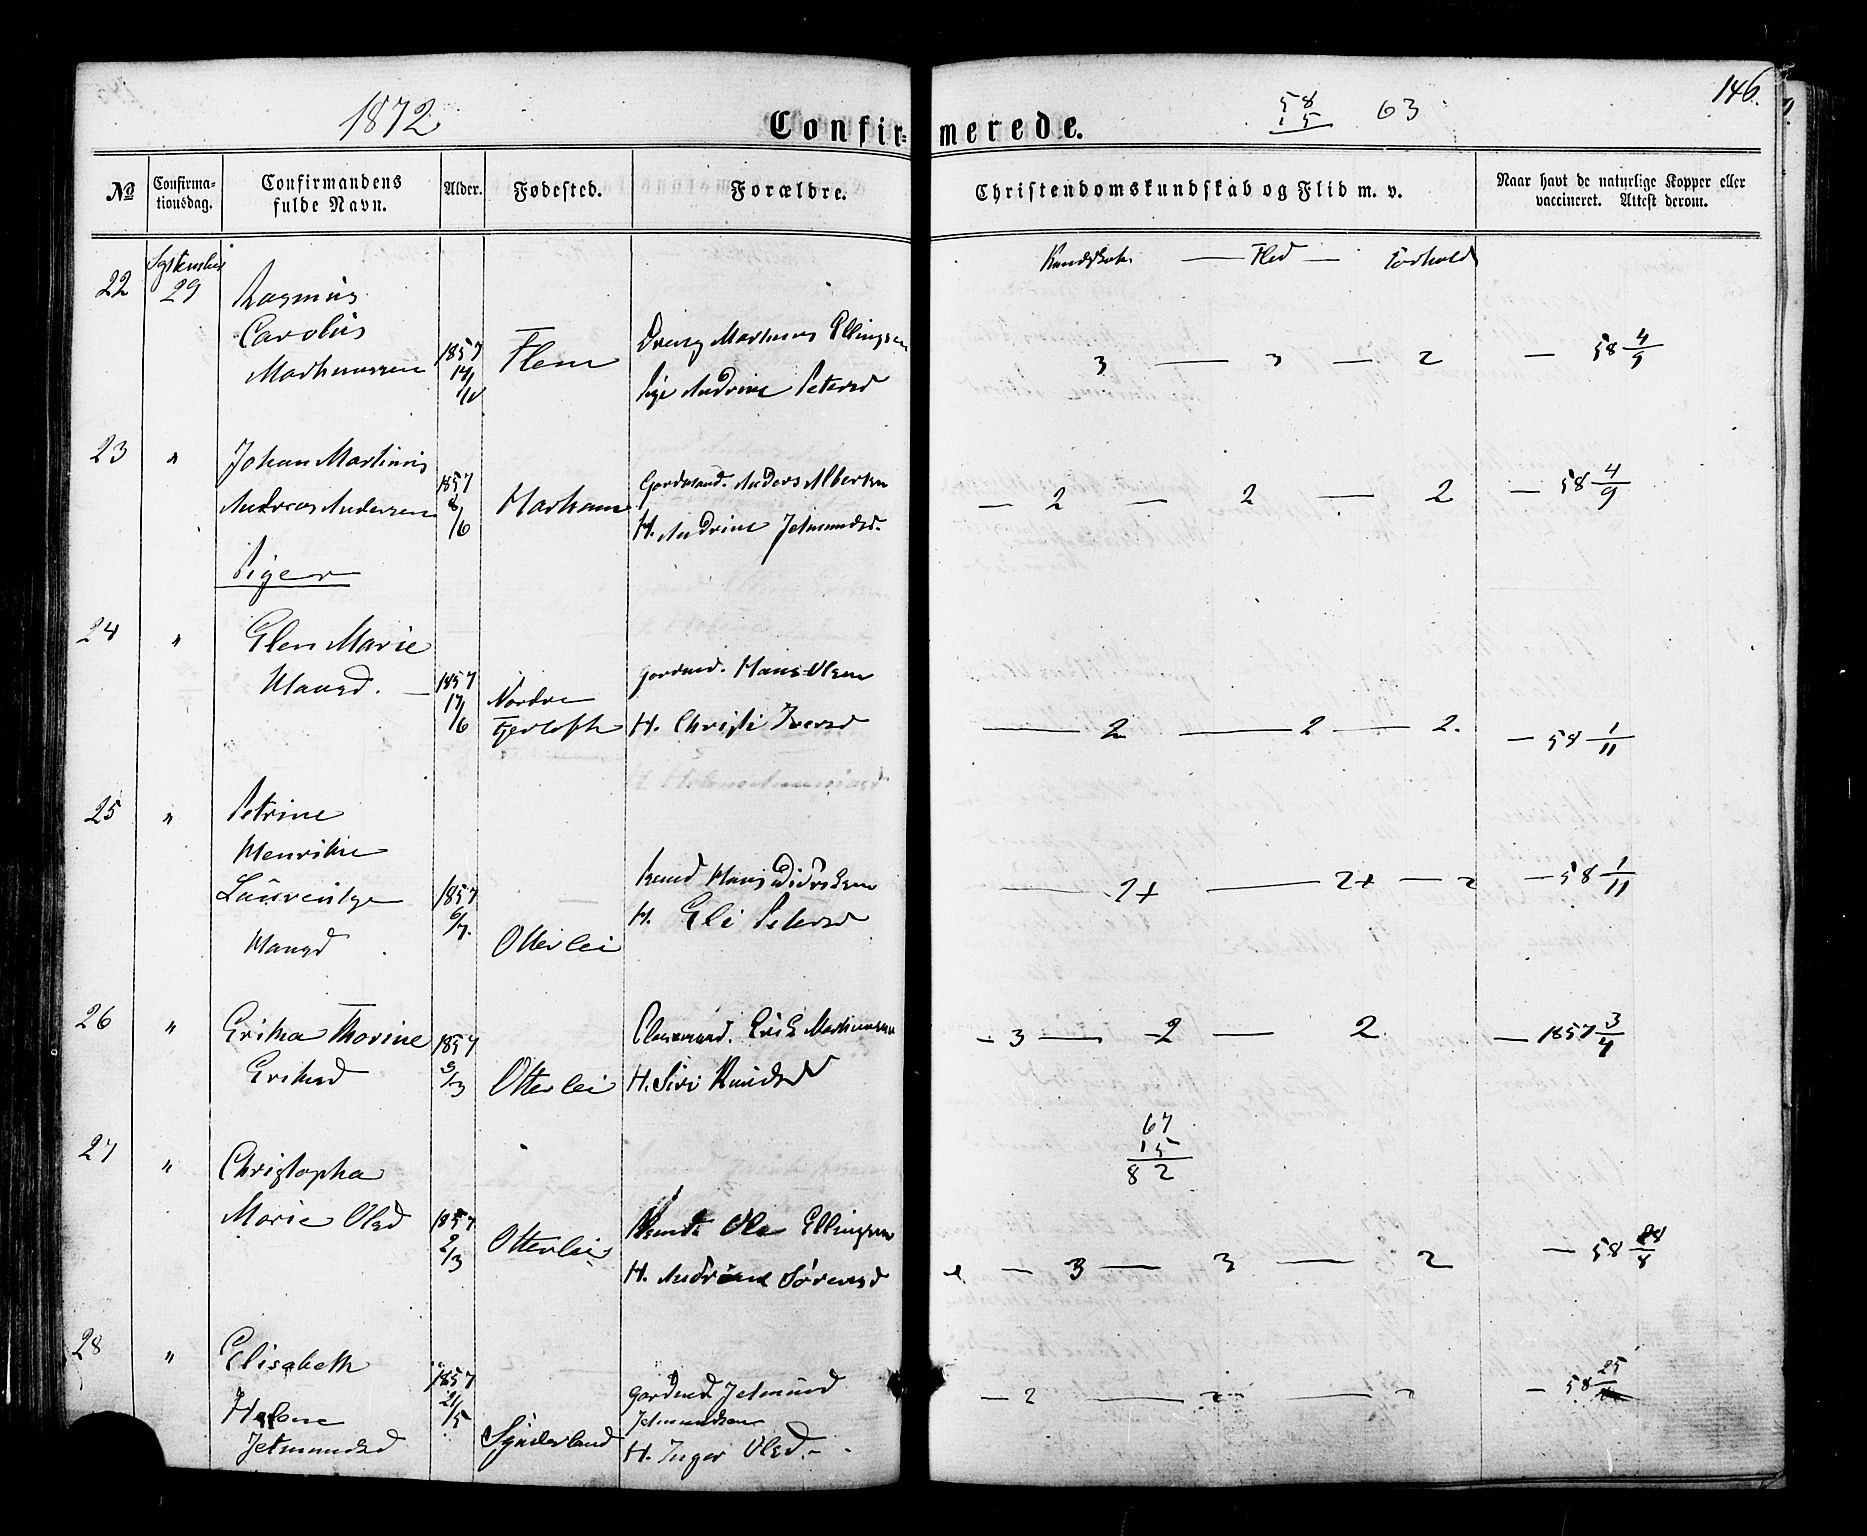 1872
Confir-
merede.
58
15
63
146.
No
Confirma-
tionsdag.
Confirmandens
fulde Navn.
Alder.
Fødested.
Forældre.
Christendomskundskab og Flid m. v.
Naar havt de naturlige Kopper eller
vaccineret. Attest derom.
Kundskab — Flid — Forhold
22 September
29
Rasmus
Carolus
Mathiassen
1857
Flem
Dreng Mathias Ellingsen
Pige Andrine Petersd
3 — 3 — 2 — 58 4/9
23 "
Johan Martinus
Andreas Andersen
1857
8/6
Harham
Gardmand. Anders Albertsen
H. Andrine Jetmundsd.
— 2 — 2 — 2 — 58 4/9
Piger
24 "
Elen Marie
Hansd. —
1857
17/6
Nordre
Fjertoft
Gardmd. Hans Olsen
H. Christi Iversd
— 2 — 2 — 2. — 58 1/11
25 "
Petrine
Henrikke
Laurentze
Hansd
1857
6/7.
Otterlei
Hans Didriksen
H. Eli Petersd
— 2+ — 2+ — 2 — 58 1/11
26 "
Erika Thorine
Eriksd
1857
3/3
Otterlei
Erik Mathiassen
H. Siri Knudsd
- 3 — 2 — 2 — 1857 3/4
67
15
82
27 "
Christopha
Marie Olsd
1857
2/3
Otterlei
Ole Ellingsen
H. Andrine Sørensd
— 3 — 3 — 2 — 58 28/8
28 "
Elisabeth
Helene
Jetmundsd
1857
21/5
Synderland
Gardmd. Jetmund
Jetmundsen
H. Inger Olsd. -
— 2 — 2 — 2 — 58 25